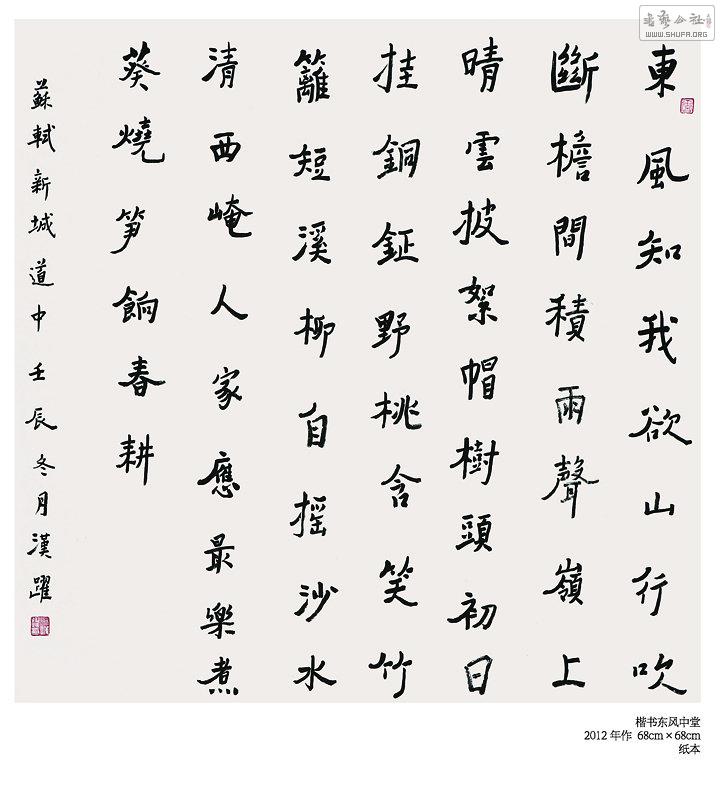 東風知我欲山行吹
斷檐間積雨聲嶺上
晴雲披絮帽樹頭初日
挂銅鉦野桃含笑竹
籬短溪柳自摇沙水
清西崦人家應最樂煮
葵燒筍餉春耕
蘇軾新城道中壬辰冬月漢躍
WWW.SHUFA.ORG
楷书东风中堂
2012 年作 68cm×68cm
纸本